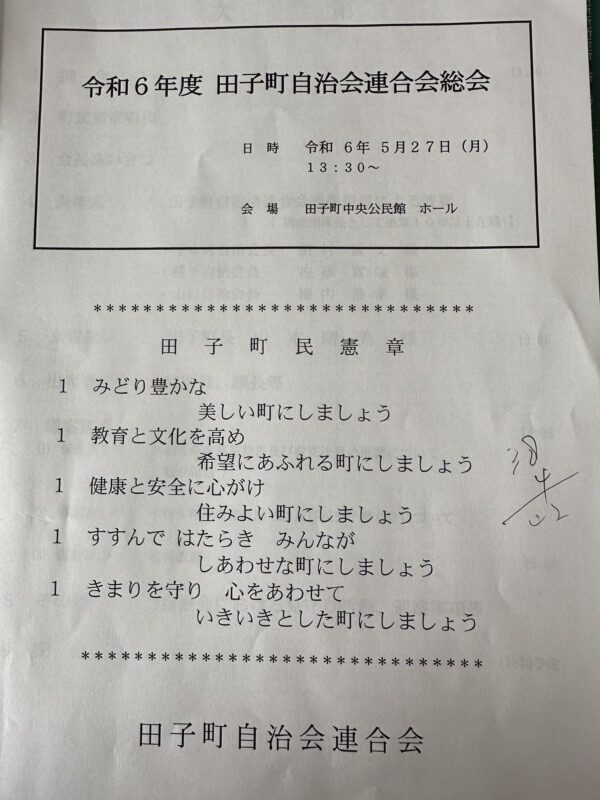 令和6年度 田子町自治会連合会総会
日 時 令和 6年 5月27日(月)
13:30~
会 場 田子町中央公民館 ホール
*******************************
田 子 町 民 憲 章
1 みどり豊かな
美しい町にしましょう
1 教育と文化を高め
希望にあふれる町にしましょう
1 健康と安全に心がけ
住みよい町にしましょう
1 すすんで はたらき みんなが
しあわせな町にしましょう
1 きまりを守り 心をあわせて
いきいきとした町にしましょう
*********************************
田子町自治会連合会